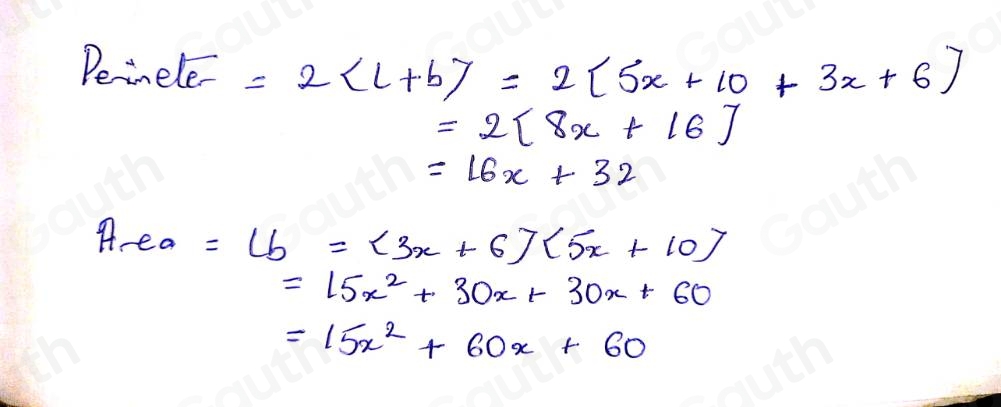 Perimeter = 2(l+b) = 2[5x + 10 + 3x + 6]
= 2[8x + 16]
= 16x + 32
Area = lb = (3x + 6)(5x + 10)
= 15x² + 30x + 30x + 60
= 15x² + 60x + 60